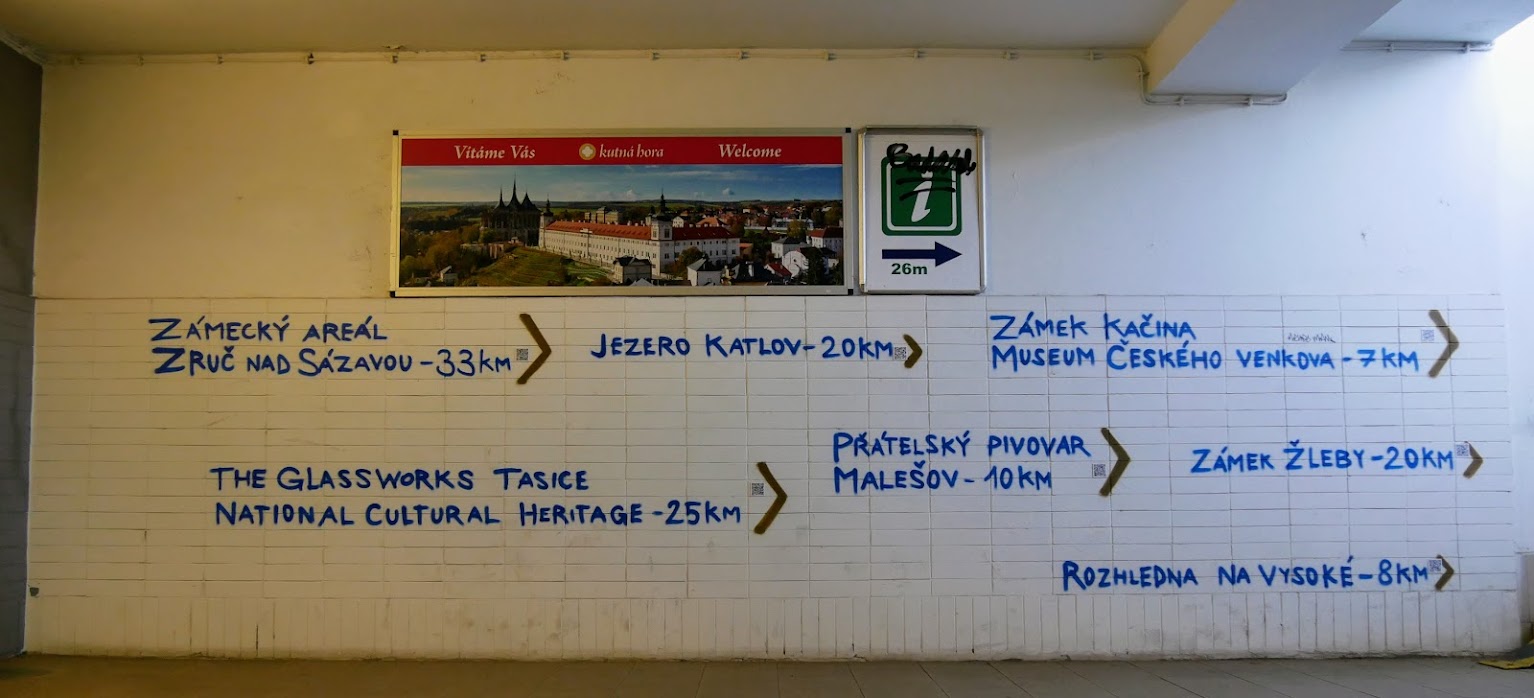 Vítáme Vás kutná hora Welcome
i
26m
ZÁMECKÝ AREÁL
ZRUČ NAD SÁZAVOU - 33 KM
JEZERO KATLOV - 20 KM
ZÁMEK KAČINA
MUSEUM ČESKÉHO VENKOVA - 7 KM
THE GLASSWORKS TASICE
NATIONAL CULTURAL HERITAGE - 25 KM
PŘÁTELSKÝ PIVOVAR
MALEŠOV - 10 KM
ZÁMEK ŽLEBY - 20 KM
ROZHLEDNA NA VYSOKÉ - 8 KM